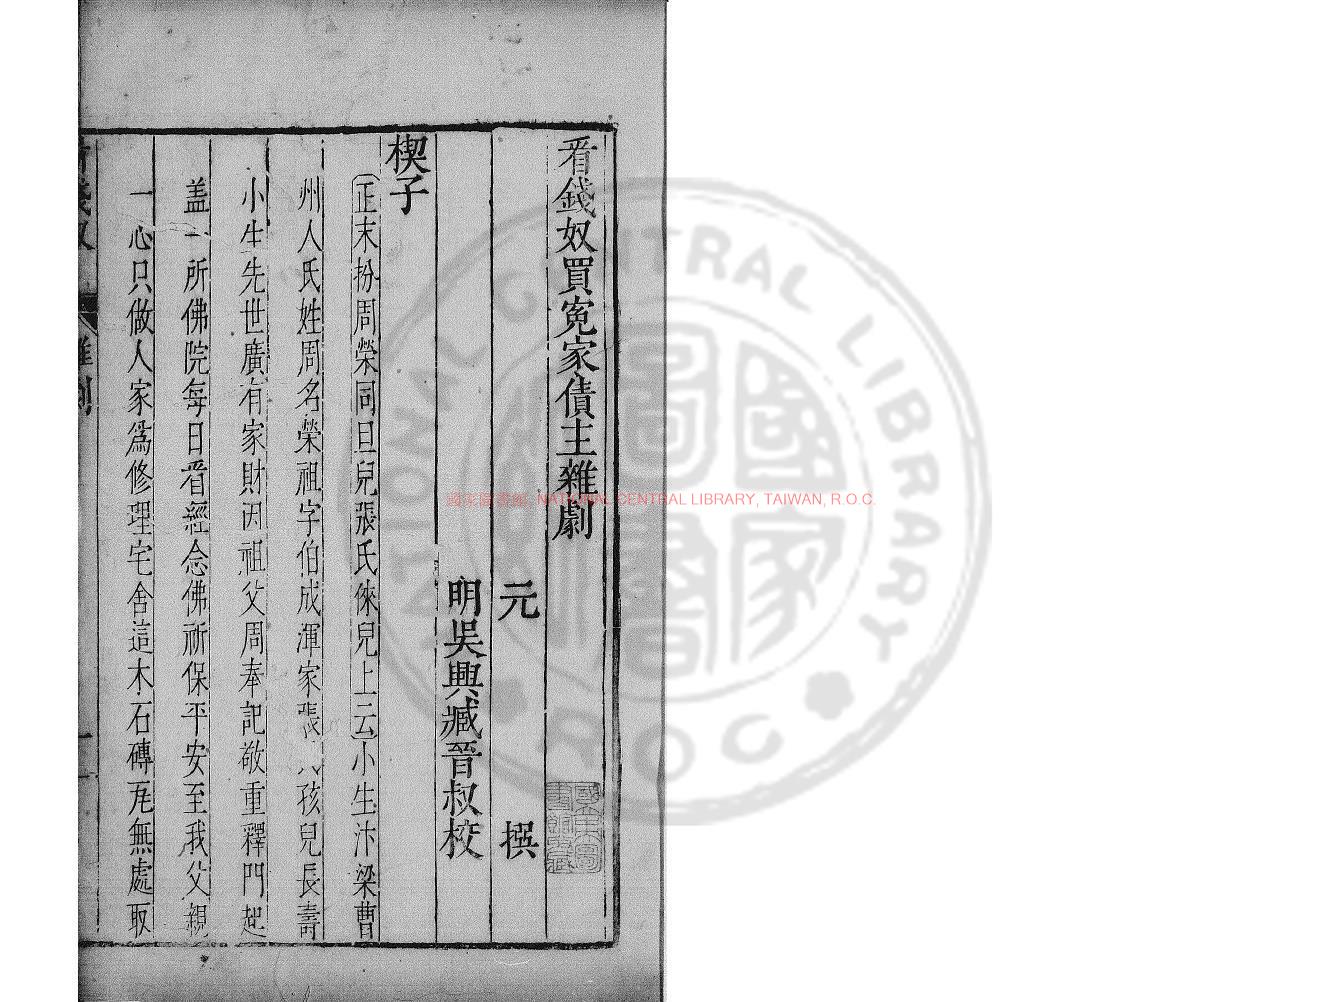 看錢奴買冤家債主雜劇
元　撰
明吳興臧晉叔校
楔子
正末扮周榮同旦兒張氏倈兒上云小生汴梁曹
州人氏姓周名榮祖字伯成渾家張 孩兒長壽
小生先世廣有家財因祖父周奉記敬重釋門起
盖一所佛院每日看經念佛祈保平安至我父親
一心只做人家爲修理宅舍這木石磚瓦無處取
雜劇
國家圖書館, NATIONAL CENTRAL LIBRARY, TAIWAN, R.O.C.
NATIONAL CENTRAL LIBRARY
ROC
國家圖書